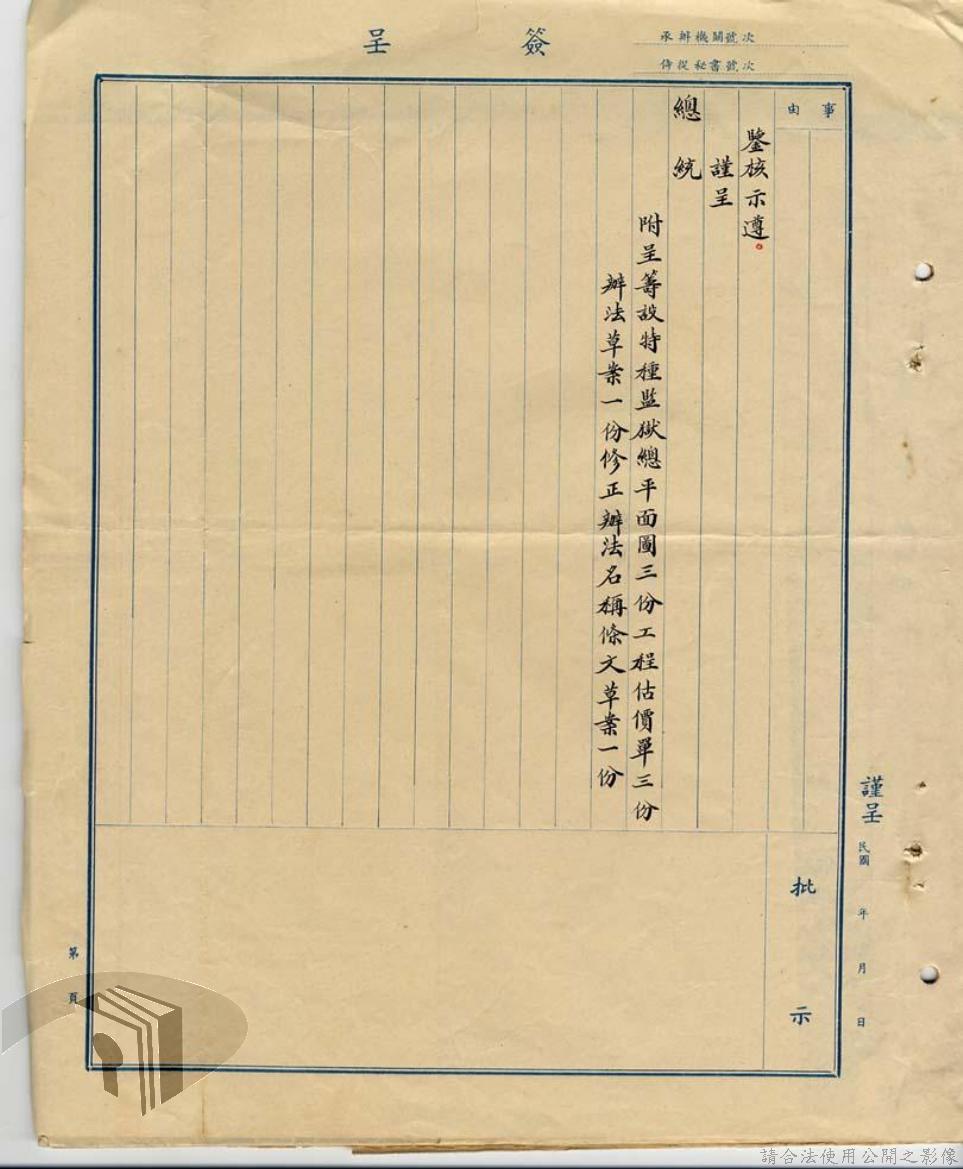 簽呈
承辦機關號次
侍從秘書號次
事由
鑒核示遵。
謹呈
總統
附呈籌設特種監獄總平面圖三份工程估價單三份
辦法草案一份修正辦法名稱條文草案一份
批示
謹呈 民國 年 月 日
第 頁
請合法使用公開之影像